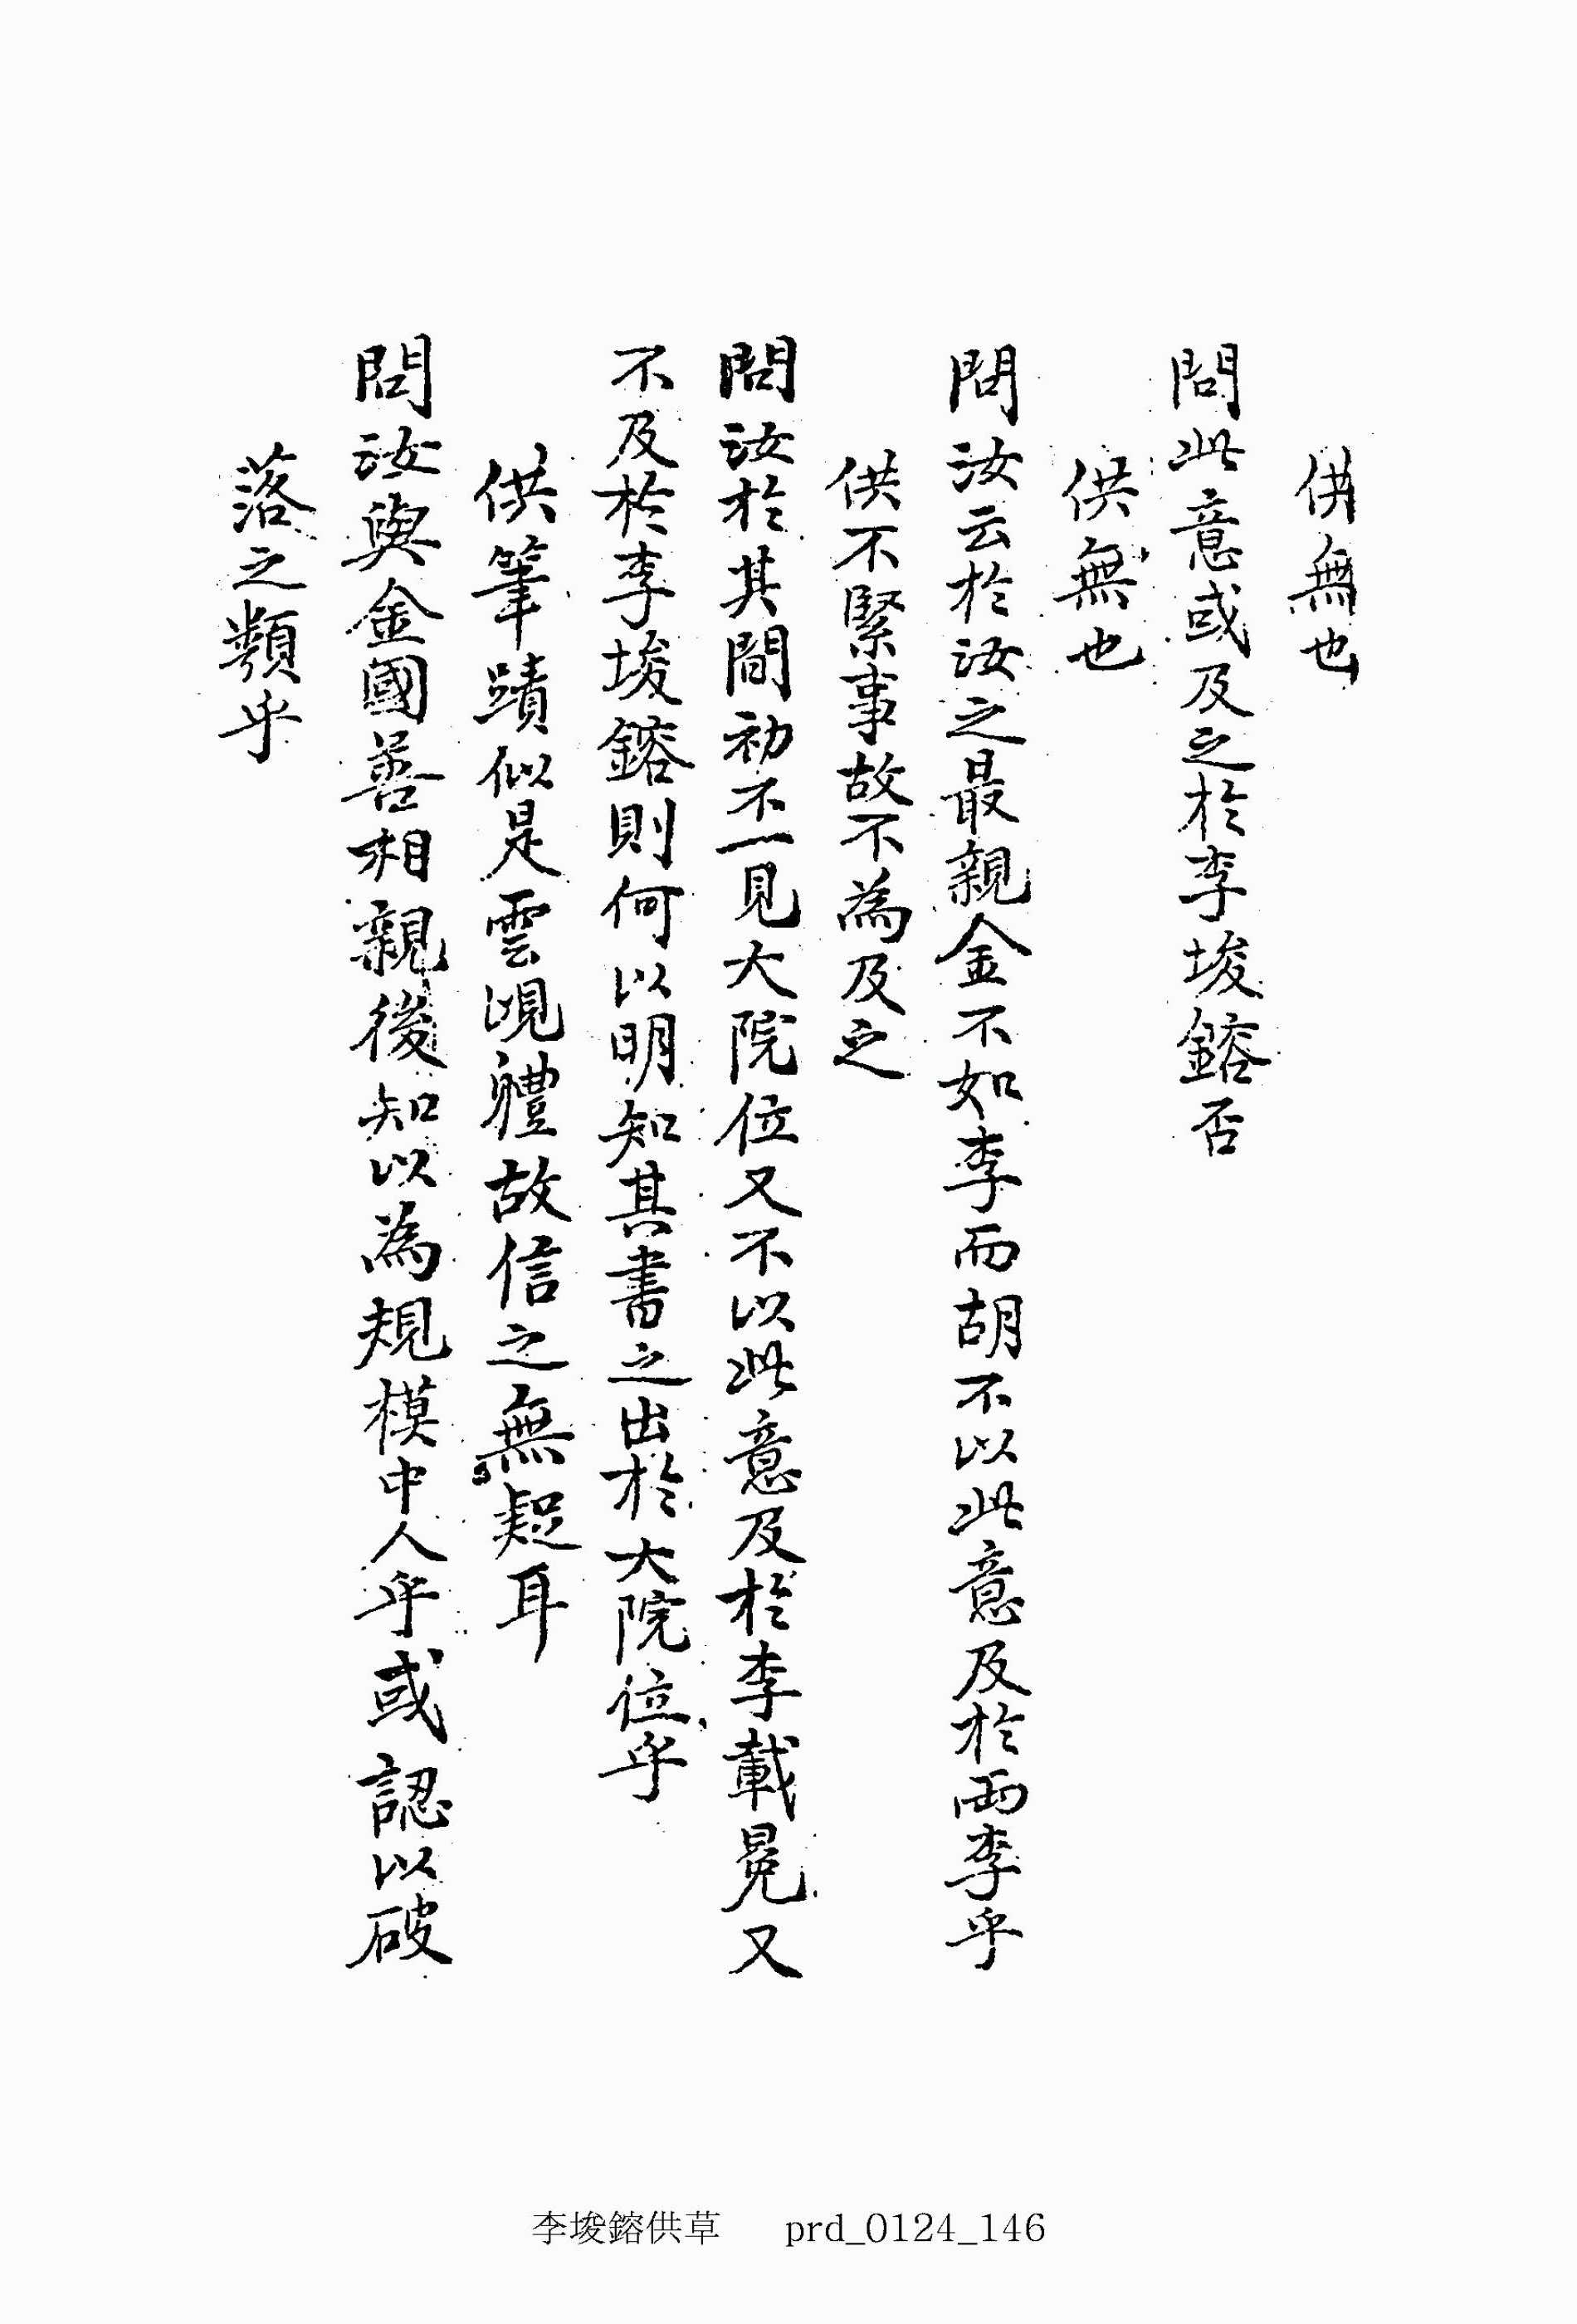 供無也
問此意或及之於李埈鎔否
供無也
問汝云於汝之最親金不如李而胡不以此意及於兩李乎
供不緊事故不為及之
問汝於其間初不一見大院位又不以此意及於李載冕又
不及於李埈鎔則何以明知其書之出於大院位乎
供筆蹟似是雲峴體故信之無疑耳
問汝與金國善相親後知以為規模中人乎或認以破
落之類乎
李埈鎔供草 prd_0124_146